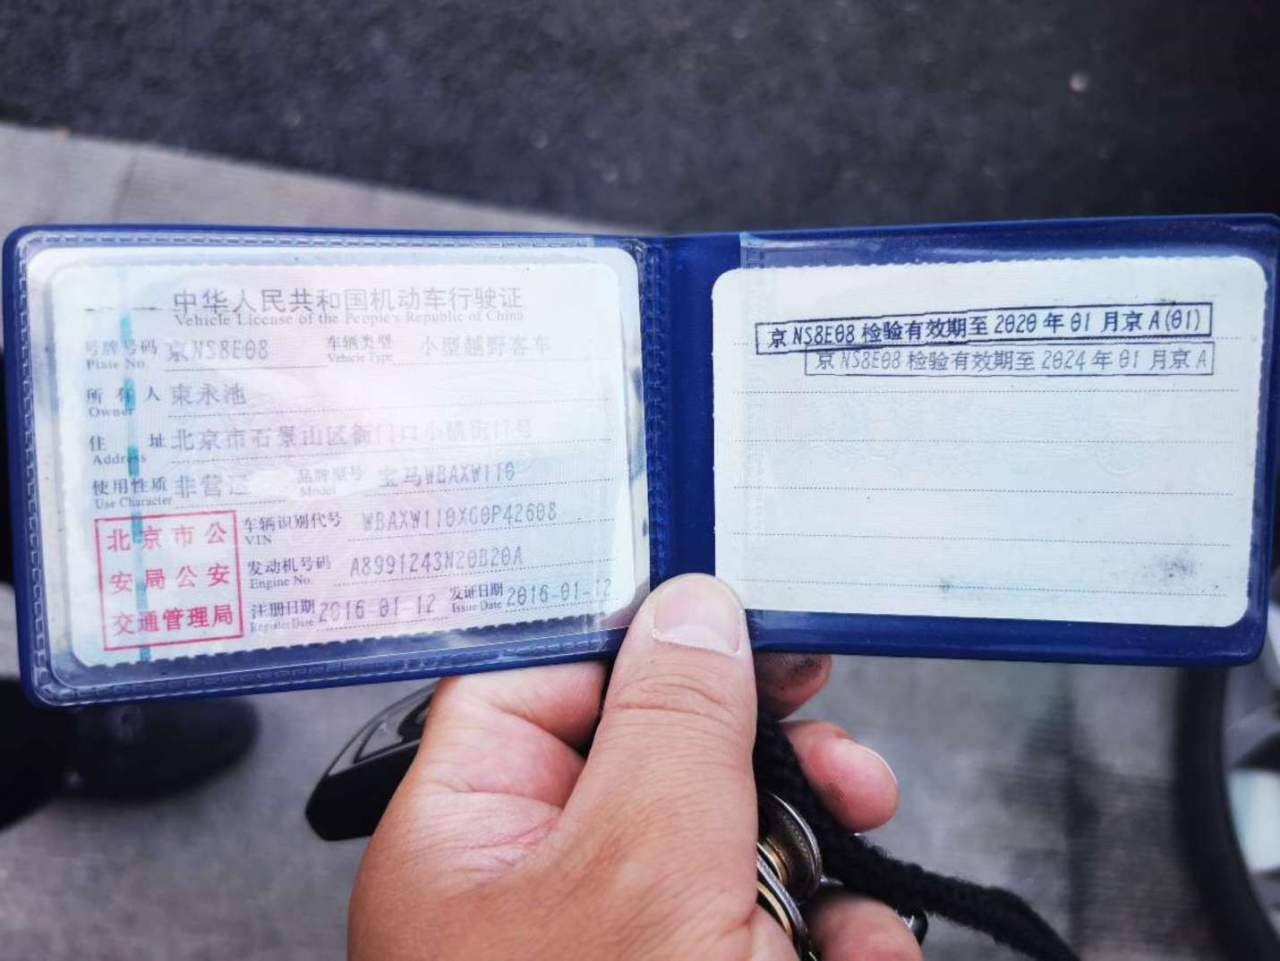 中华人民共和国机动车行驶证
Vehicle License of the People's Republic of China
号牌号码 京NS8E08 车辆类型 小型越野客车
Plate No. Vehicle Type
所有人 束永池
Owner
住址 北京市石景山区衙门口小横街17号
Address
使用性质 非营运 品牌型号 宝马WBAXW110
Use Character Model
车辆识别代号 WBAXW110XG0P42608
VIN
发动机号码 A8991243N20B20A
Engine No.
注册日期 2016-01-12 发证日期 2016-01-12
Register Date Issue Date
北京市公
安局公安
交通管理局
京NS8E08检验有效期至2020年01月京A(01)
京NS8E08检验有效期至2024年01月京A